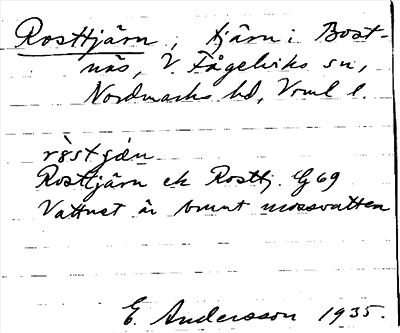 Rosttjärn, tjärn i Bost-
näs, V. Fågelviks sn,
Nordmarks hd, Vrml l.
ròstgǽn
Rosttjärn ek Rosttj. G 69
Vattnet är brunt mossvatten
E. Andersson 1935.